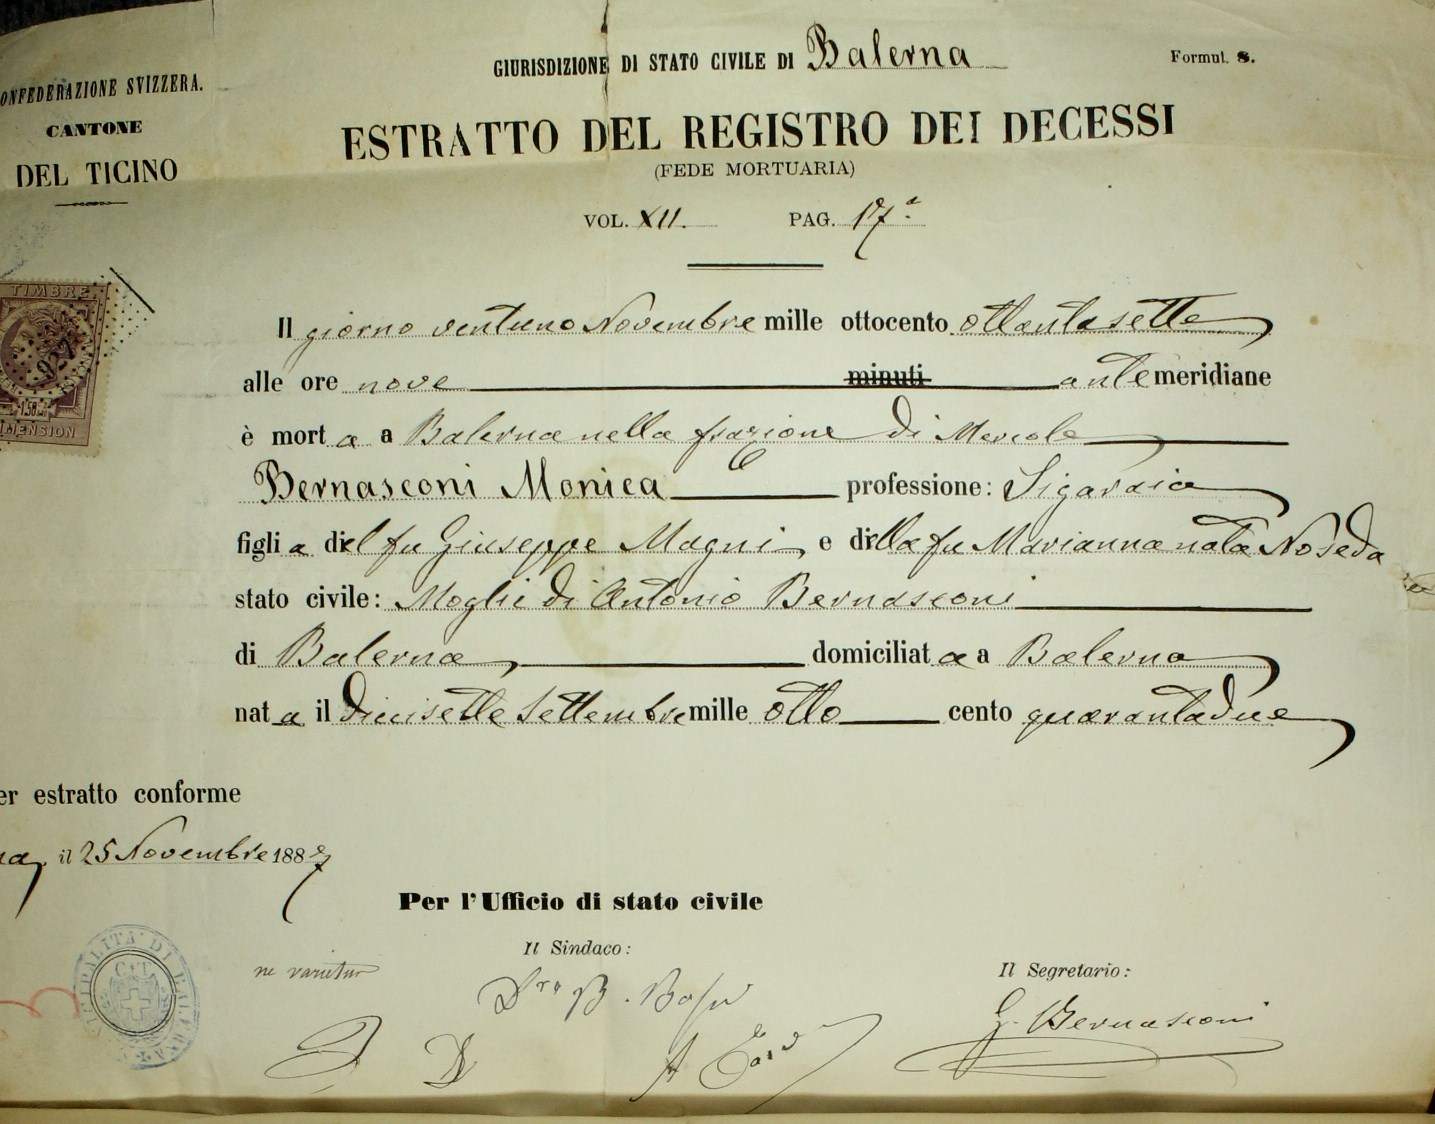 GIURISDIZIONE DI STATO CIVILE DI Balerna
Formul. 8.
ONFEDERAZIONE SVIZZERA.
CANTONE
DEL TICINO
ESTRATTO DEL REGISTRO DEI DECESSI
(FEDE MORTUARIA)
VOL. XII. PAG. 17ª
TIMBRE
927
DIMENSION
Il giorno ventuno Novembre mille ottocento ottantasette
alle ore nove minuti antemeridiane
è morta a Balerna nella frazione di Mercole
Bernasconi Monica professione: Sigaraia
figlia del fu Giuseppe Magni, e della fu Marianna nata Noseda
stato civile: Moglie di Antonio Bernasconi
di Balerna, domiciliata a Balerna
nata il diecisette Settembre mille otto cento quarantadue
er estratto conforme
na, il 25 Novembre 1887
Per l'Ufficio di stato civile
Il Sindaco:
ne varietur
Dre B.
Il Segretario:
G. Bernasconi